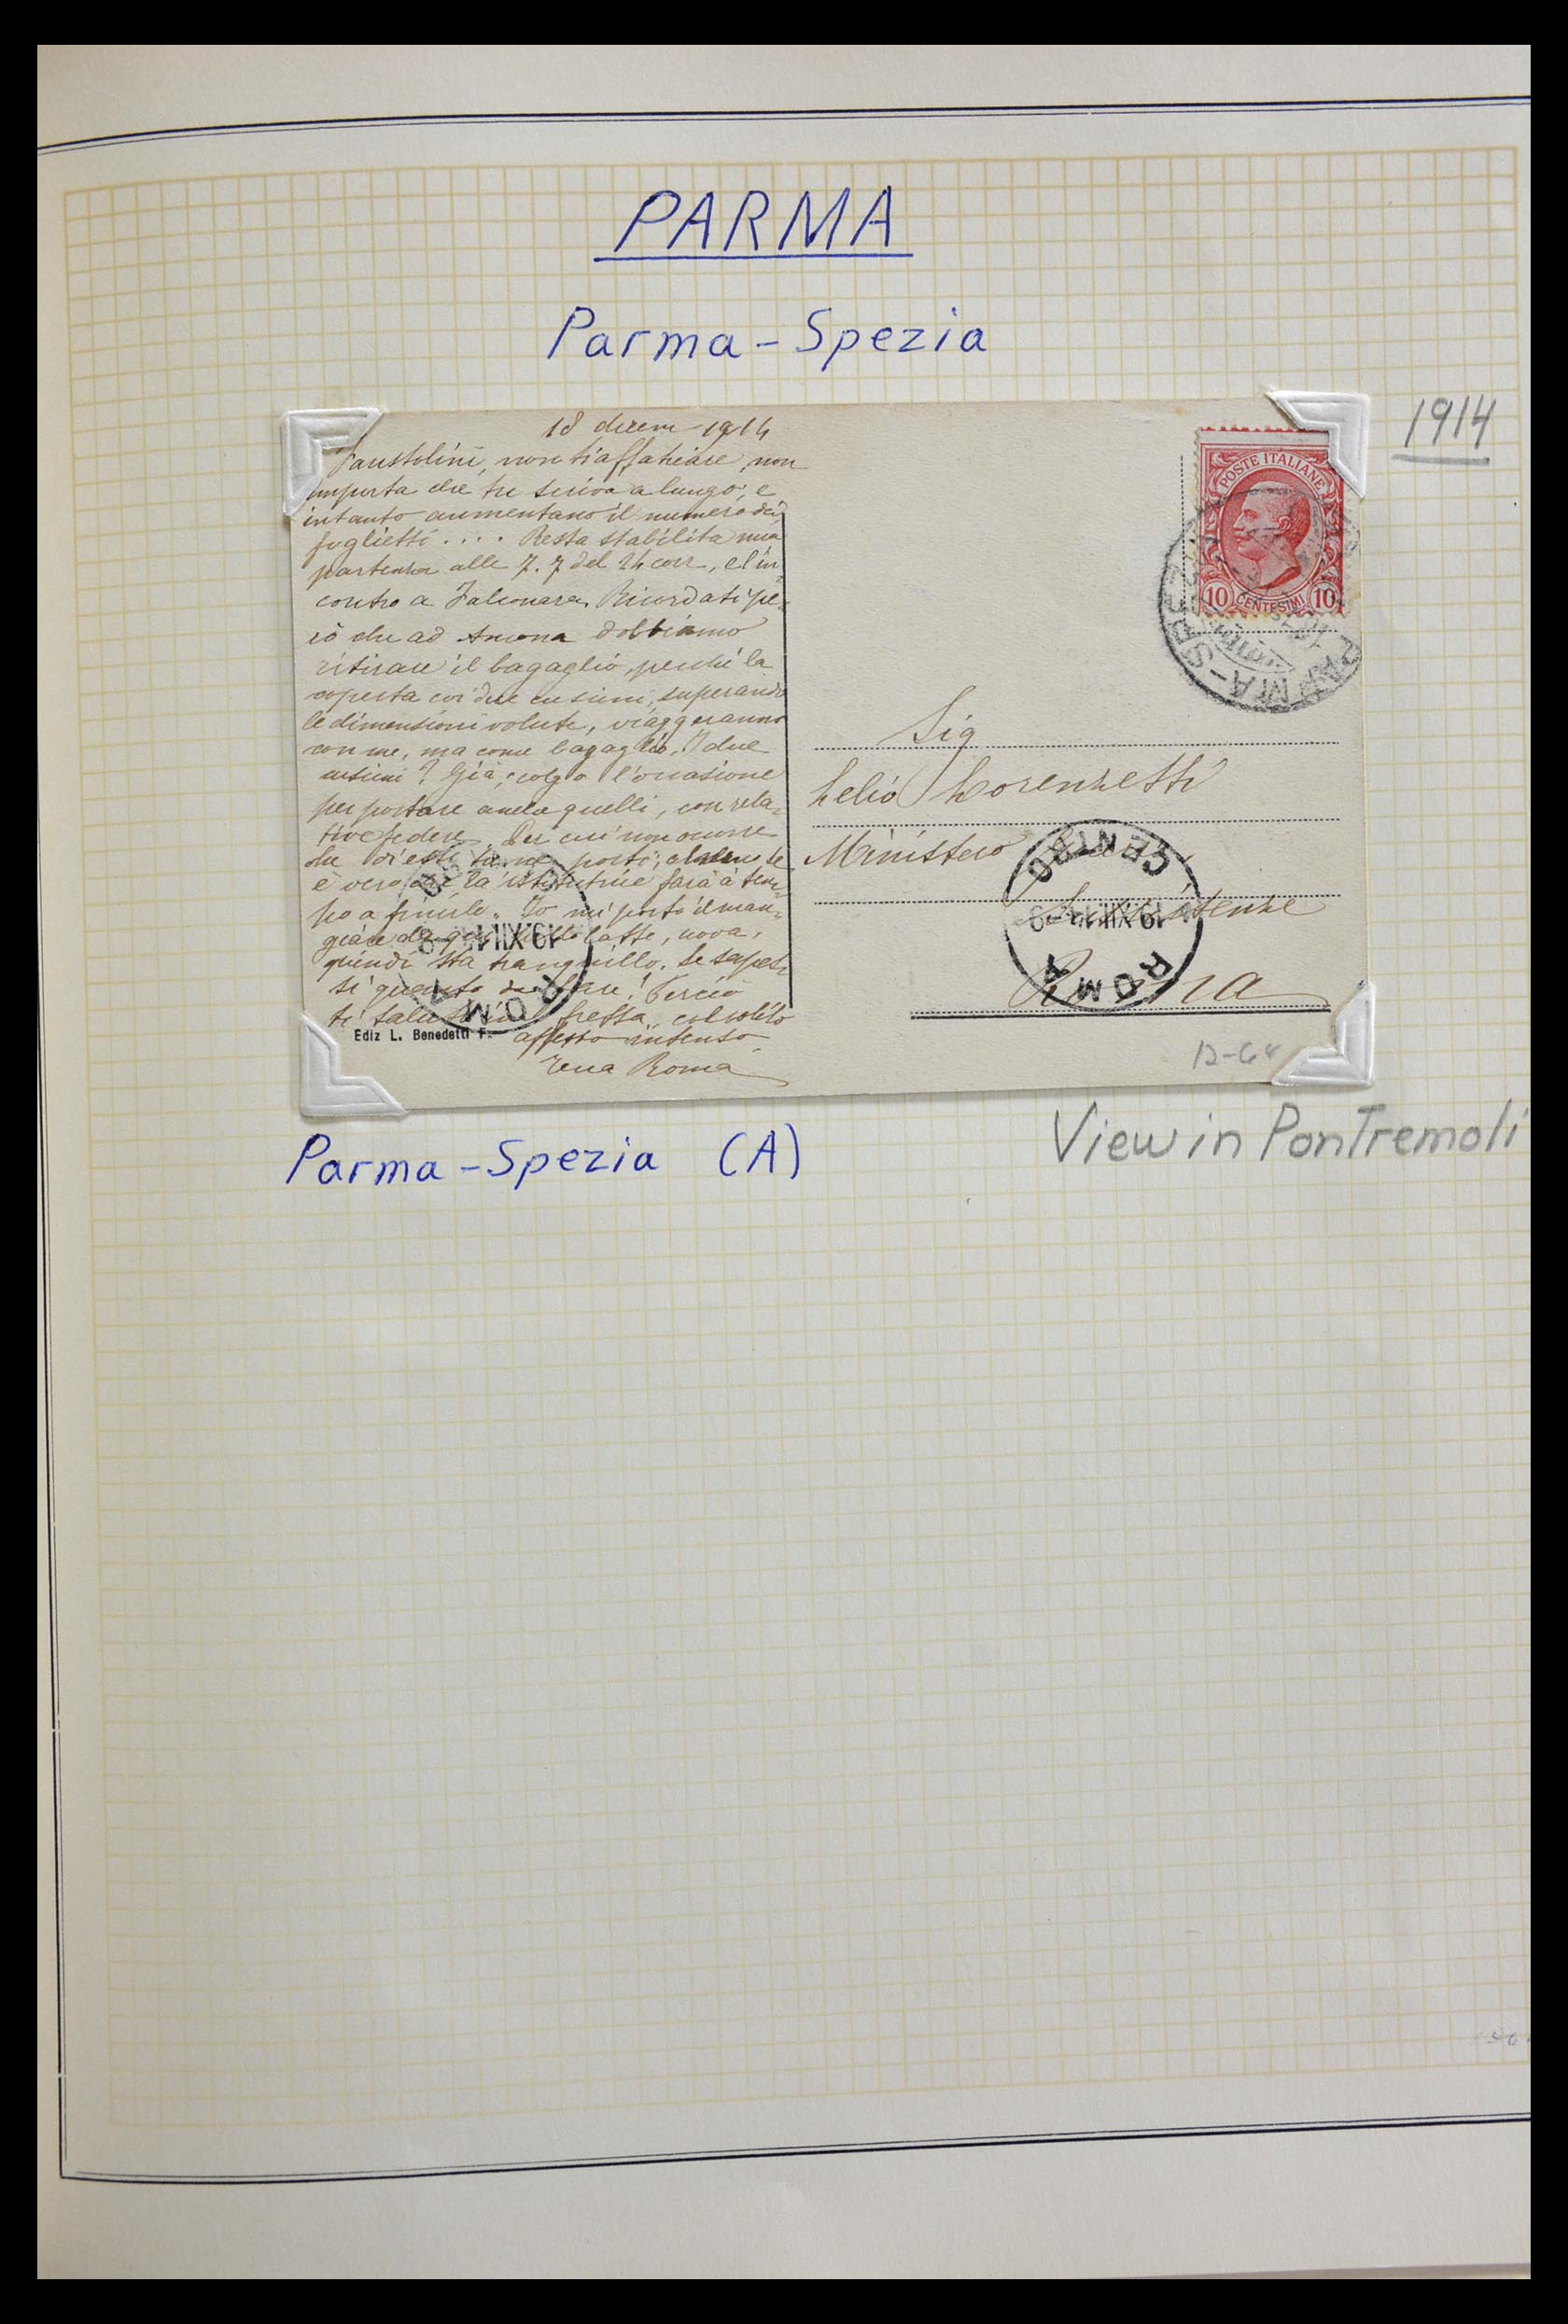 PARMA
Parma - Spezia
1914
18 dicem - 1914
Faustolini, non ti affaticare, non
importa che tu scriva a lungo, e
intanto aumentano il numero dei
foglietti .... Resta stabilita mia
partenza alle 7.7 del 24 corr, e l'in-
contro a Falconara. Ricordati pe-
rò che ad Ancona dobbiamo
ritirare il bagaglio, perché la
coperta coi due cuscini, superando
le dimensioni volute, viaggeranno
con me, ma come bagaglio. I due
cuscini? Già, colgo l'occasione
per portare anche quelli, con rela-
tive federe. Per cui non occorre
che porti, almeno se
è vero che la istitutrice farà a tem-
po a finirle. Io mi porto il man-
giare da latte, uova,
quindi sta tranquillo. Se sapes-
si quanto da fare! Perciò
ti saluto in fretta, col solito
affetto intenso
Tua Roma
Ediz L. Benedetti F.
POSTE ITALIANE
10 CENTESIMI 10
PARMA-SPEZIA
Sig
Lelio Lorenzetti
Ministero
Sussistenze
Roma
ROMA CENTRO
19.XII.14
ROMA
19.XII.14
12-68
Parma - Spezia (A)
View in Pontremoli